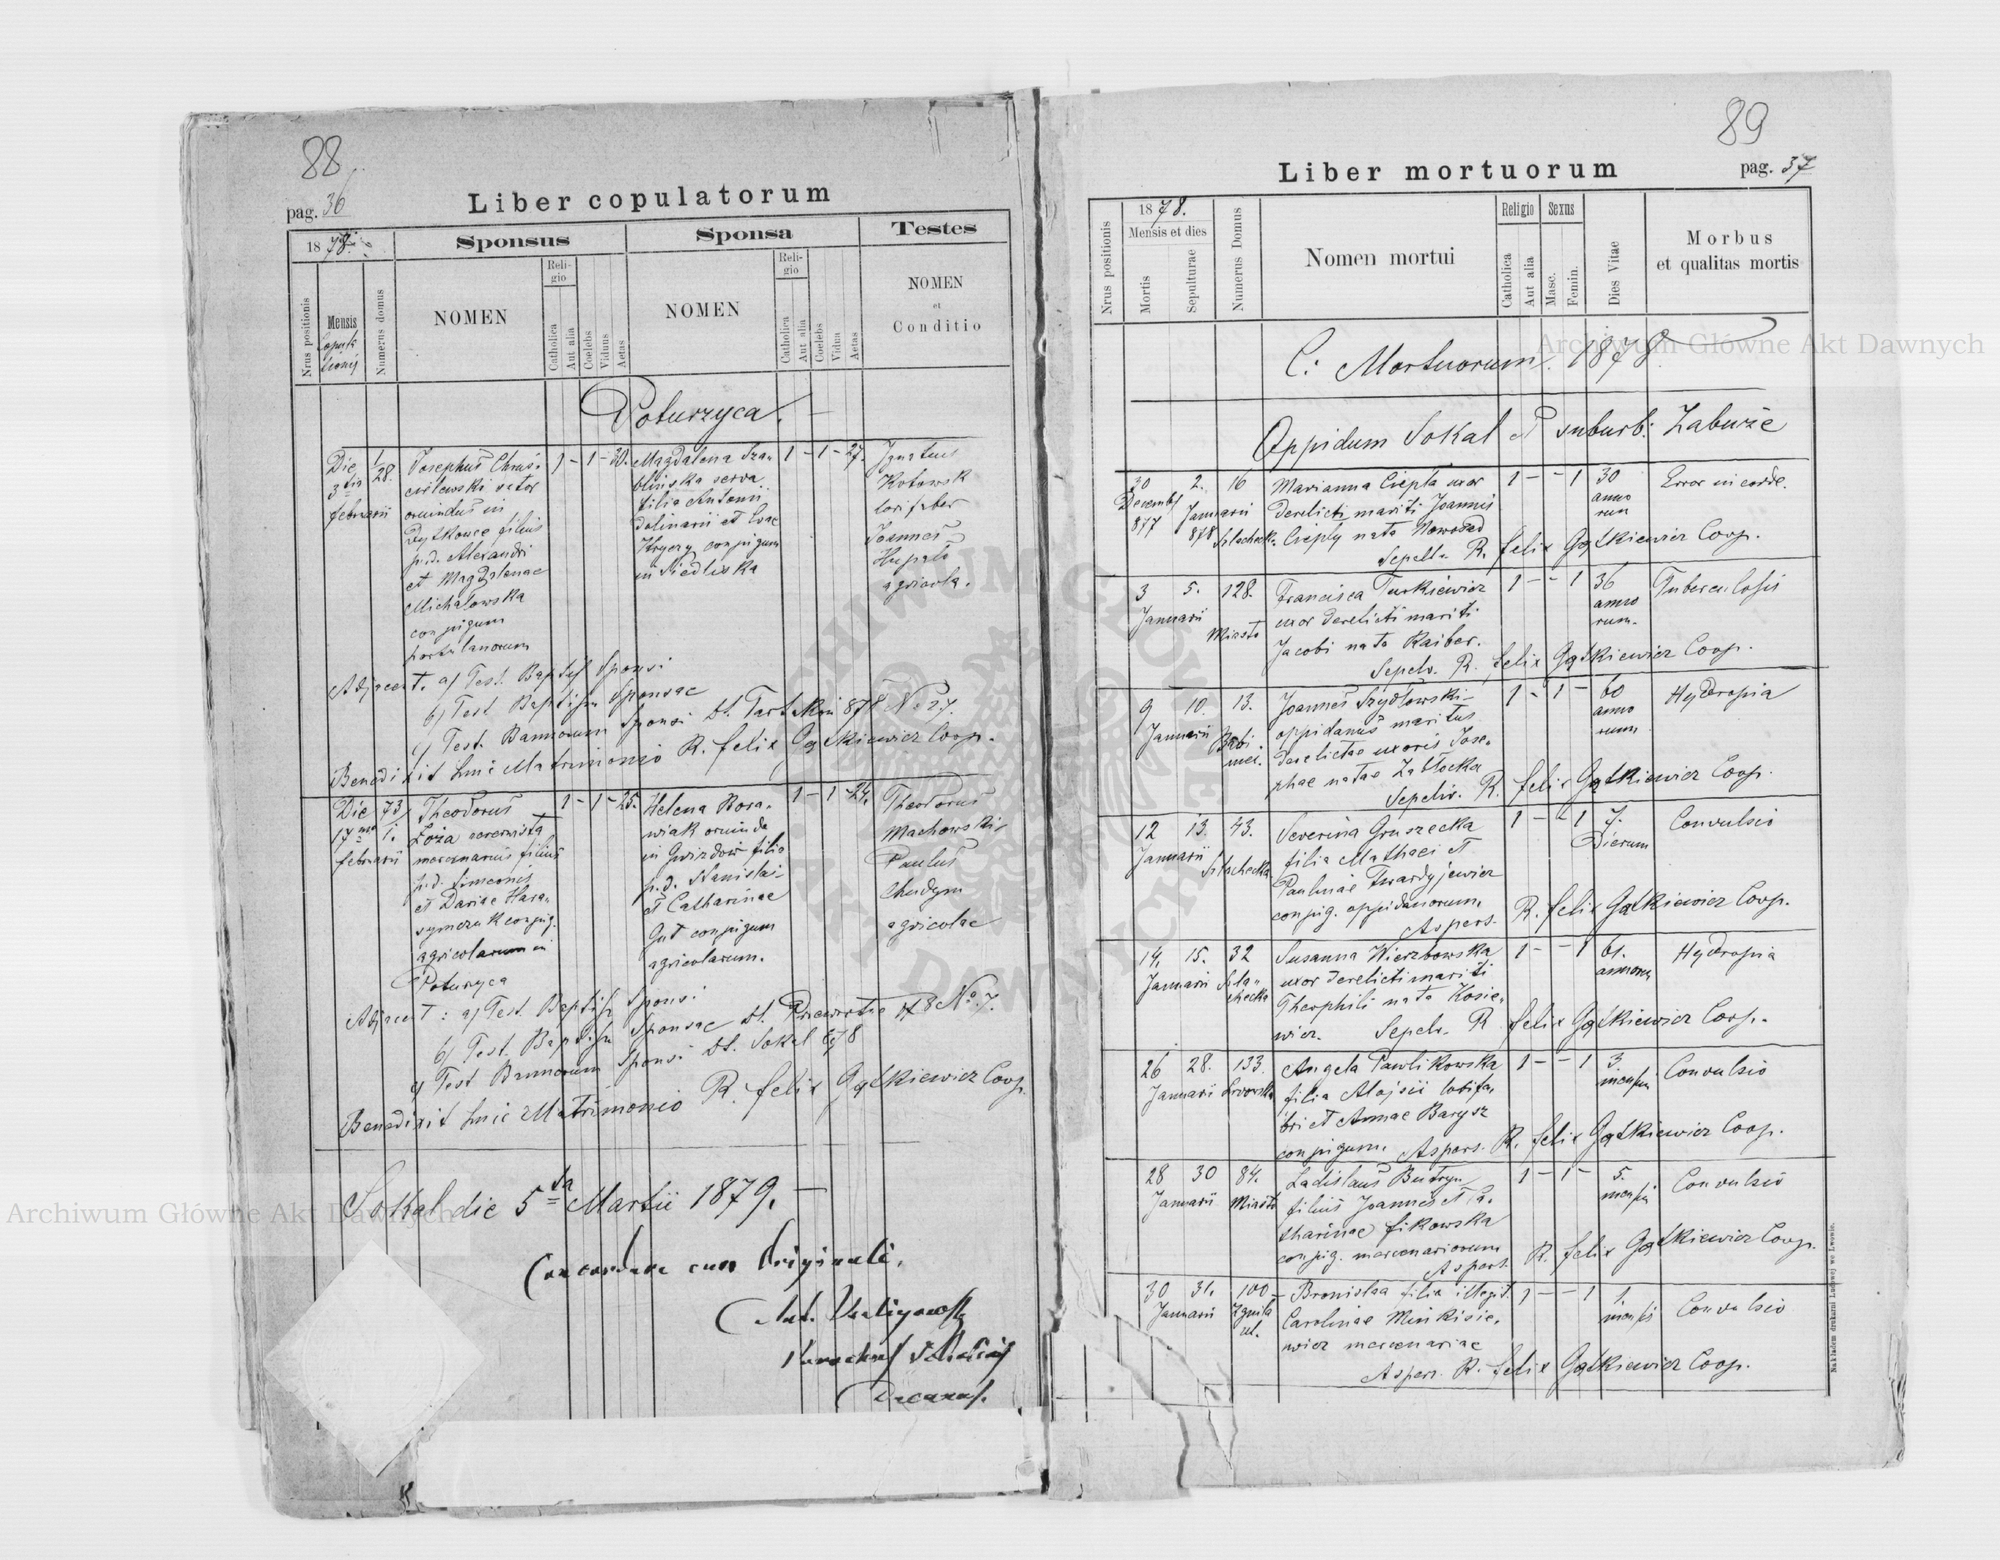 88
pag. 36
Liber copulatorum
1878.
Sponsus
Sponsa
Testes
Nrus positionis
Mensis
Numerus domus
NOMEN
Religio
Catholica
Aut alia
Coelebs
Viduus
Aetas
NOMEN
Religio
Catholica
Aut alia
Coelebs
Vidua
Aetas
NOMEN
et
Conditio
Poturzyca.
Die 1/28. Josephus 1 - 1 - 30. Magdalena 1 - 1 - 27. Ignatius
3tia sator serva Kotowsk
februarii oriundus in filia Antonii
Dytkowce filius et Evae Joannes
p. d. Alexandri conjugum Hupalo
et Magdalenae in Siedliska agricola.
Michałowska
conjugum
Adjacent. a/ Test. Baptis Sponsi
b/ Test Baptism Sponsae
c/ Test. Bannorum Sponsi dt. Tartakow 878 No 27.
Benedixit huic Matrimonio R. Felix Gątkiewicz Coop.
Die 73/ Theodorus 1 - 1 - 25. Helena 1 - 1 - 24. Theodorus
17ma 1. Łoża oriunda Machowski,
februarii mercenarius filius filia Paulus
p. d. Simeonis p. d. Stanislai Chudym
et Dariae et Catharinae agricolae
conjug. Gut conjugum
agricolarum in agricolarum.
Poturzyca
Adjacent: a/ Test. Baptis Sponsi
b/ Test. Baptism Sponsae dt. 878 No. 7.
c/ Test Bannorum Sponsi dt. Sokal 878
Benedixit huic Matrimonio R. Felix Gątkiewicz Coop.
Sokal die 5ta Martii 1879. —
Concordare cum Originali,
Decanus.
89
Liber mortuorum
pag. 37
Nrus positionis
1878.
Mensis et dies
Mortis
Sepulturae
Numerus Domus
Nomen mortui
Religio
Catholica
Aut alia
Sexus
Masc.
Femin.
Dies Vitae
Morbus
et qualitas mortis
C: Mortuorum. 1878
Oppidum Sokal et suburb: Zabuże
30 2. 16 Marianna Ciepła uxor 1 - - 1 30 Error in corde.
Decemb Januarii derelicti mariti Joannis anno
877 878 Szlachecka Ciepły nata Nowosad rum
Sepelt. R. Felix Gątkiewicz Coop.
3 5. 128. Francisca Turkiewicz 1 - - 1 36 Tuberculosis
Januarii Miasto uxor derelicti mariti anno
Jacobi nata Raiber. rum.
Sepelv. R. Felix Gątkiewicz Coop.
9 10. 13. Joannes Szydłowski 1 - 1 - 60 Hydropia
Januarii Babi- oppidanus maritus anno
niec. derelictae uxoris Jose- rum
phae natae Zabłocka
Sepeliv. R. Felix Gątkiewicz Coop.
12 13. 43. Severina Gruszecka 1 - - 1 7. Convulsio
Januarii Szlachecka filia Mathaei et Dierum
Paulinae Twardyjewicz
conjug. oppidanorum.
Aspers. R. Felix Gątkiewicz Coop.
14. 15. 32 Susanna Wierzbowska 1 - - 1 61. Hydropia
Januarii Szla- uxor derelicti mariti annorum
checka Theophili nata Kosie-
wicz. Sepelv. R Felix Gątkiewicz Coop.
26 28. 133. Angela Pawlikowska 1 - - 1 3 Convulsio
Januarii Lwowska filia Alojsii lorifa- mensium
bri et Annae Barysz
conjugum. Aspers. R. Felix Gątkiewicz Coop.
28 30 84. Ladislaus Butryn 1 - 1 - 5. Convulsio
Januarii Miasto filius Joannes et Ca-
tharinae Fikowska
conjug. mercenariorum
Aspers. R. Felix Gątkiewicz Coop.
30 31. 100 Bronislaa filia illegit. 1 - - 1 1. Convulsio
Januarii Carolinae Minkisie-
wicz mercenariae
Aspers. R. Felix Gątkiewicz Coop.
Nakładem drukarni Ludowej we Lwowie.
Archiwum Główne Akt Dawnych
Archiwum Główne Akt Dawnych
ARCHIWUM GŁÓWNE AKT DAWNYCH